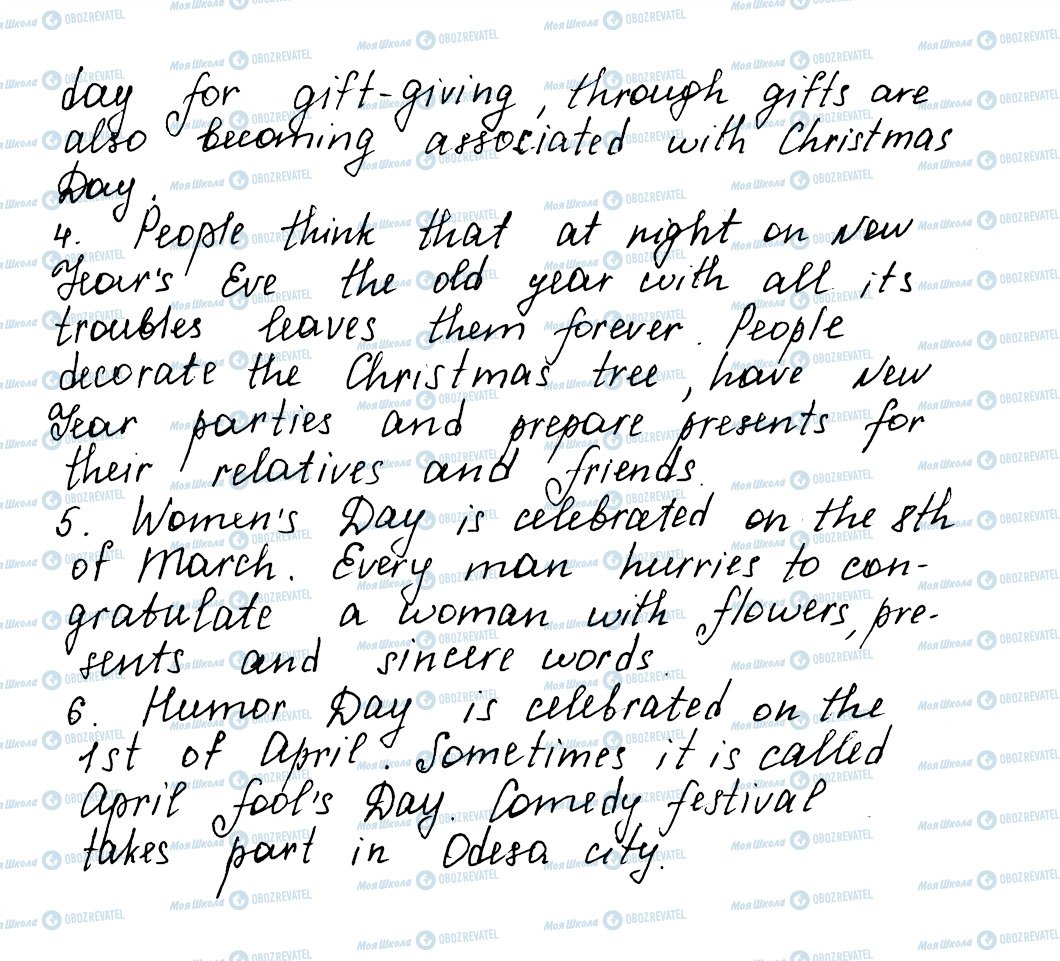 day for gift-giving, through gifts are
also becoming associated with Christmas
Day.
4. People think that at night on New
Year's Eve the old year with all its
troubles leaves them forever. People
decorate the Christmas tree, have New
Year parties and prepare presents for
their relatives and friends.
5. Women's Day is celebrated on the 8th
of March. Every man hurries to con-
gratulate a woman with flowers, pre-
sents and sincere words.
6. Humor Day is celebrated on the
1st of April. Sometimes it is called
April fool's Day. Comedy festival
takes part in Odesa city.
МояШкола OBOZREVATEL